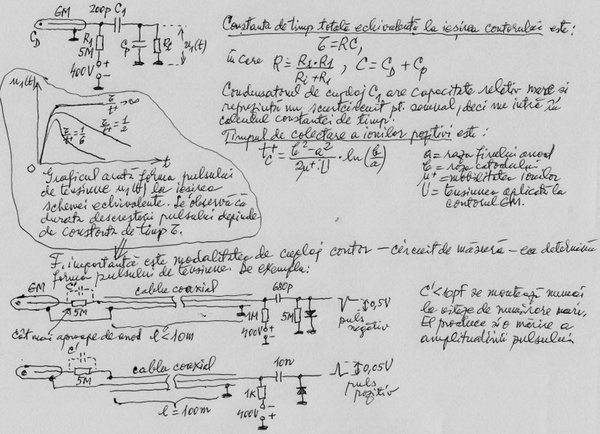 GM
200p C1
CD
R1
5M
Cp
Ri
u1(t)
400V
Constanta de timp totală echivalentă la ieşirea contorului este:
τ = RC,
în care R = R1·Ri / R1+Ri , C = CD + Cp
Condensatorul de cuplaj C1 are capacitate relativ mare şi
reprezintă un scurtcircuit pt. semnal, deci nu intră în
calculul constantei de timp.
Timpul de colectare a ionilor pozitivi este:
tc+ = b²-a² / 2μ+·U · ln(b/a)
a = raza firului anod
b = raza catodului
μ+ = mobilitatea ionilor
U = tensiunea aplicată la
contorul GM.
u1(t)
τ/t+ → ∞
τ/t+ = 1/6
τ/t+ = 1/2
0
t
Graficul arată forma pulsului
de tensiune u1(t) la ieşirea
schemei echivalente. Se observă că
durata descreşterii pulsului depinde
de constanta de timp τ.
F. importantă este modalitatea de cuplaj contor – circuit de măsură – ea determină
forma pulsului de tensiune. De exemplu:
GM
C'
5M
cablu coaxial
680p
1M
5M
400V
0,5V
puls
negativ
Cât mai aproape de anod
l < 10m
C' < 10pF se montează numai
la viteze de numărare mari.
El produce şi o mărire a
amplitudinii pulsului
C'
5M
cablu coaxial
10n
1K
400V
0,05V
puls
pozitiv
l = 100m